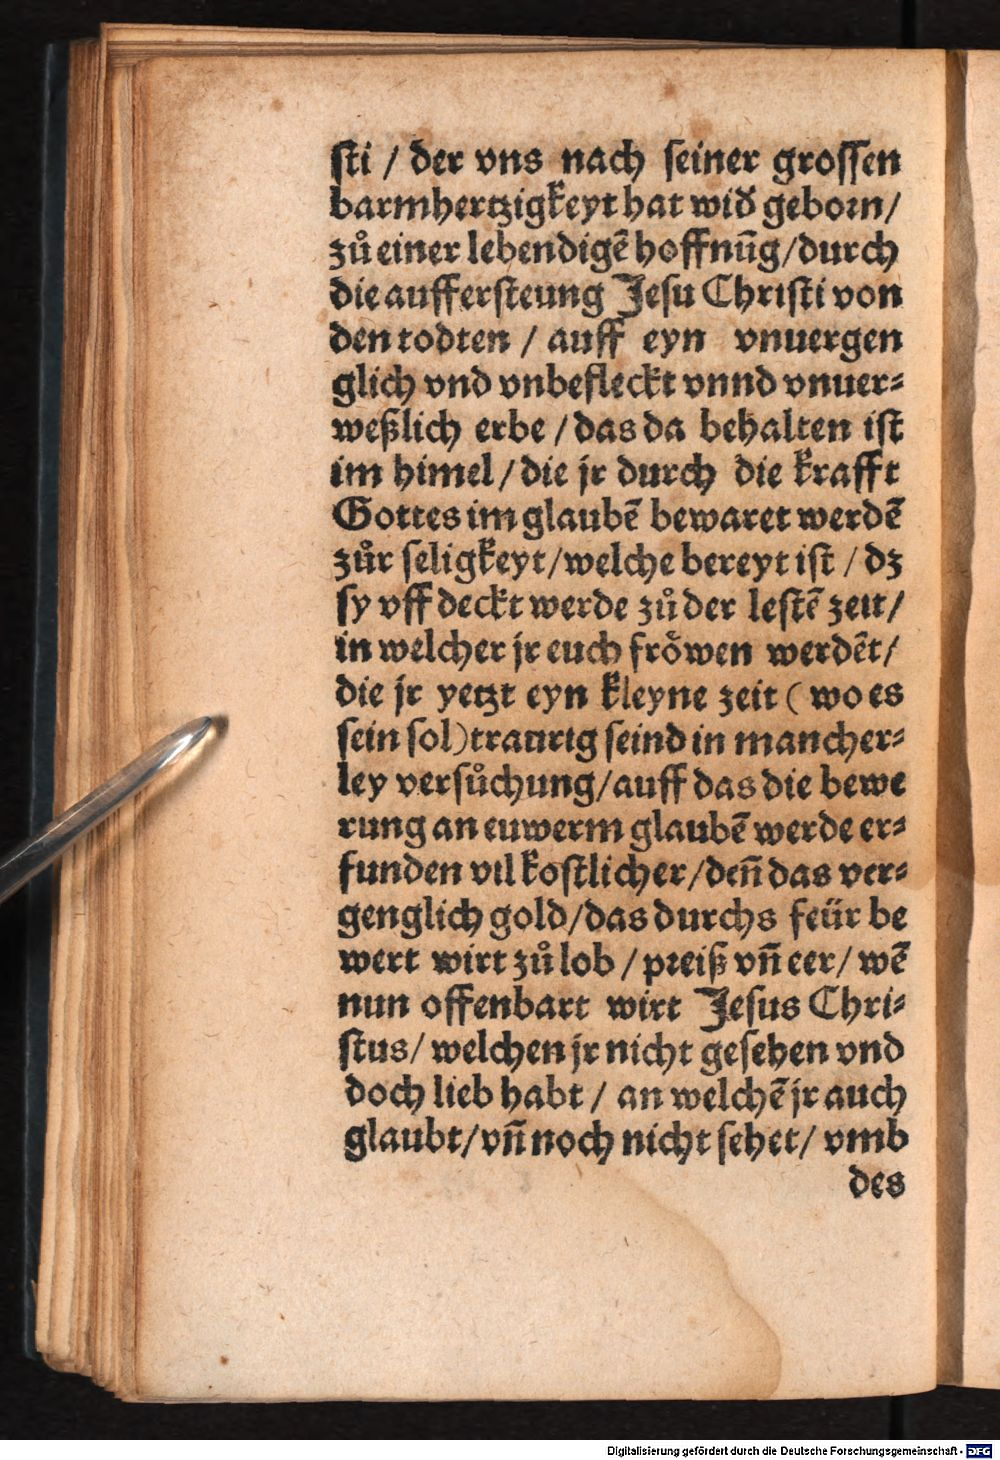 sti / der vns nach seiner grossen
barmhertzigkeyt hat wid̕ geborn /
zů einer lebendigē hoffnūg / durch
die auffersteung Jesu Christi von
den todten / auff eyn vnuergen
glich vnd vnbefleckt vnnd vnuer⸗
weßlich erbe / das da behalten ist
im himel / die jr durch die krafft
Gottes im glaubē bewaret werdē
zůr seligkeyt / welche bereyt ist / dz
sy vff deckt werde zů der lestē zeit /
in welcher jr euch frǒwen werdēt /
die jr yetzt eyn kleyne zeit ( wo es
sein sol ) traurig seind in mancher⸗
ley versůchung / auff das die bewe
rung an euwerm glaubē werde er⸗
funden vil kostlicher / den̄ das ver⸗
genglich gold / das durchs feür be
wert wirt zů lob / preiß vn̄ eer / wē
nun offenbart wirt Jesus Chri⸗
stus / welchen jr nicht gesehen vnd
doch lieb habt / an welchē jr auch
glaubt / vn̄ noch nicht sehet / vmb
des
Digitalisierung gefördert durch die Deutsche Forschungsgemeinschaft - DFG